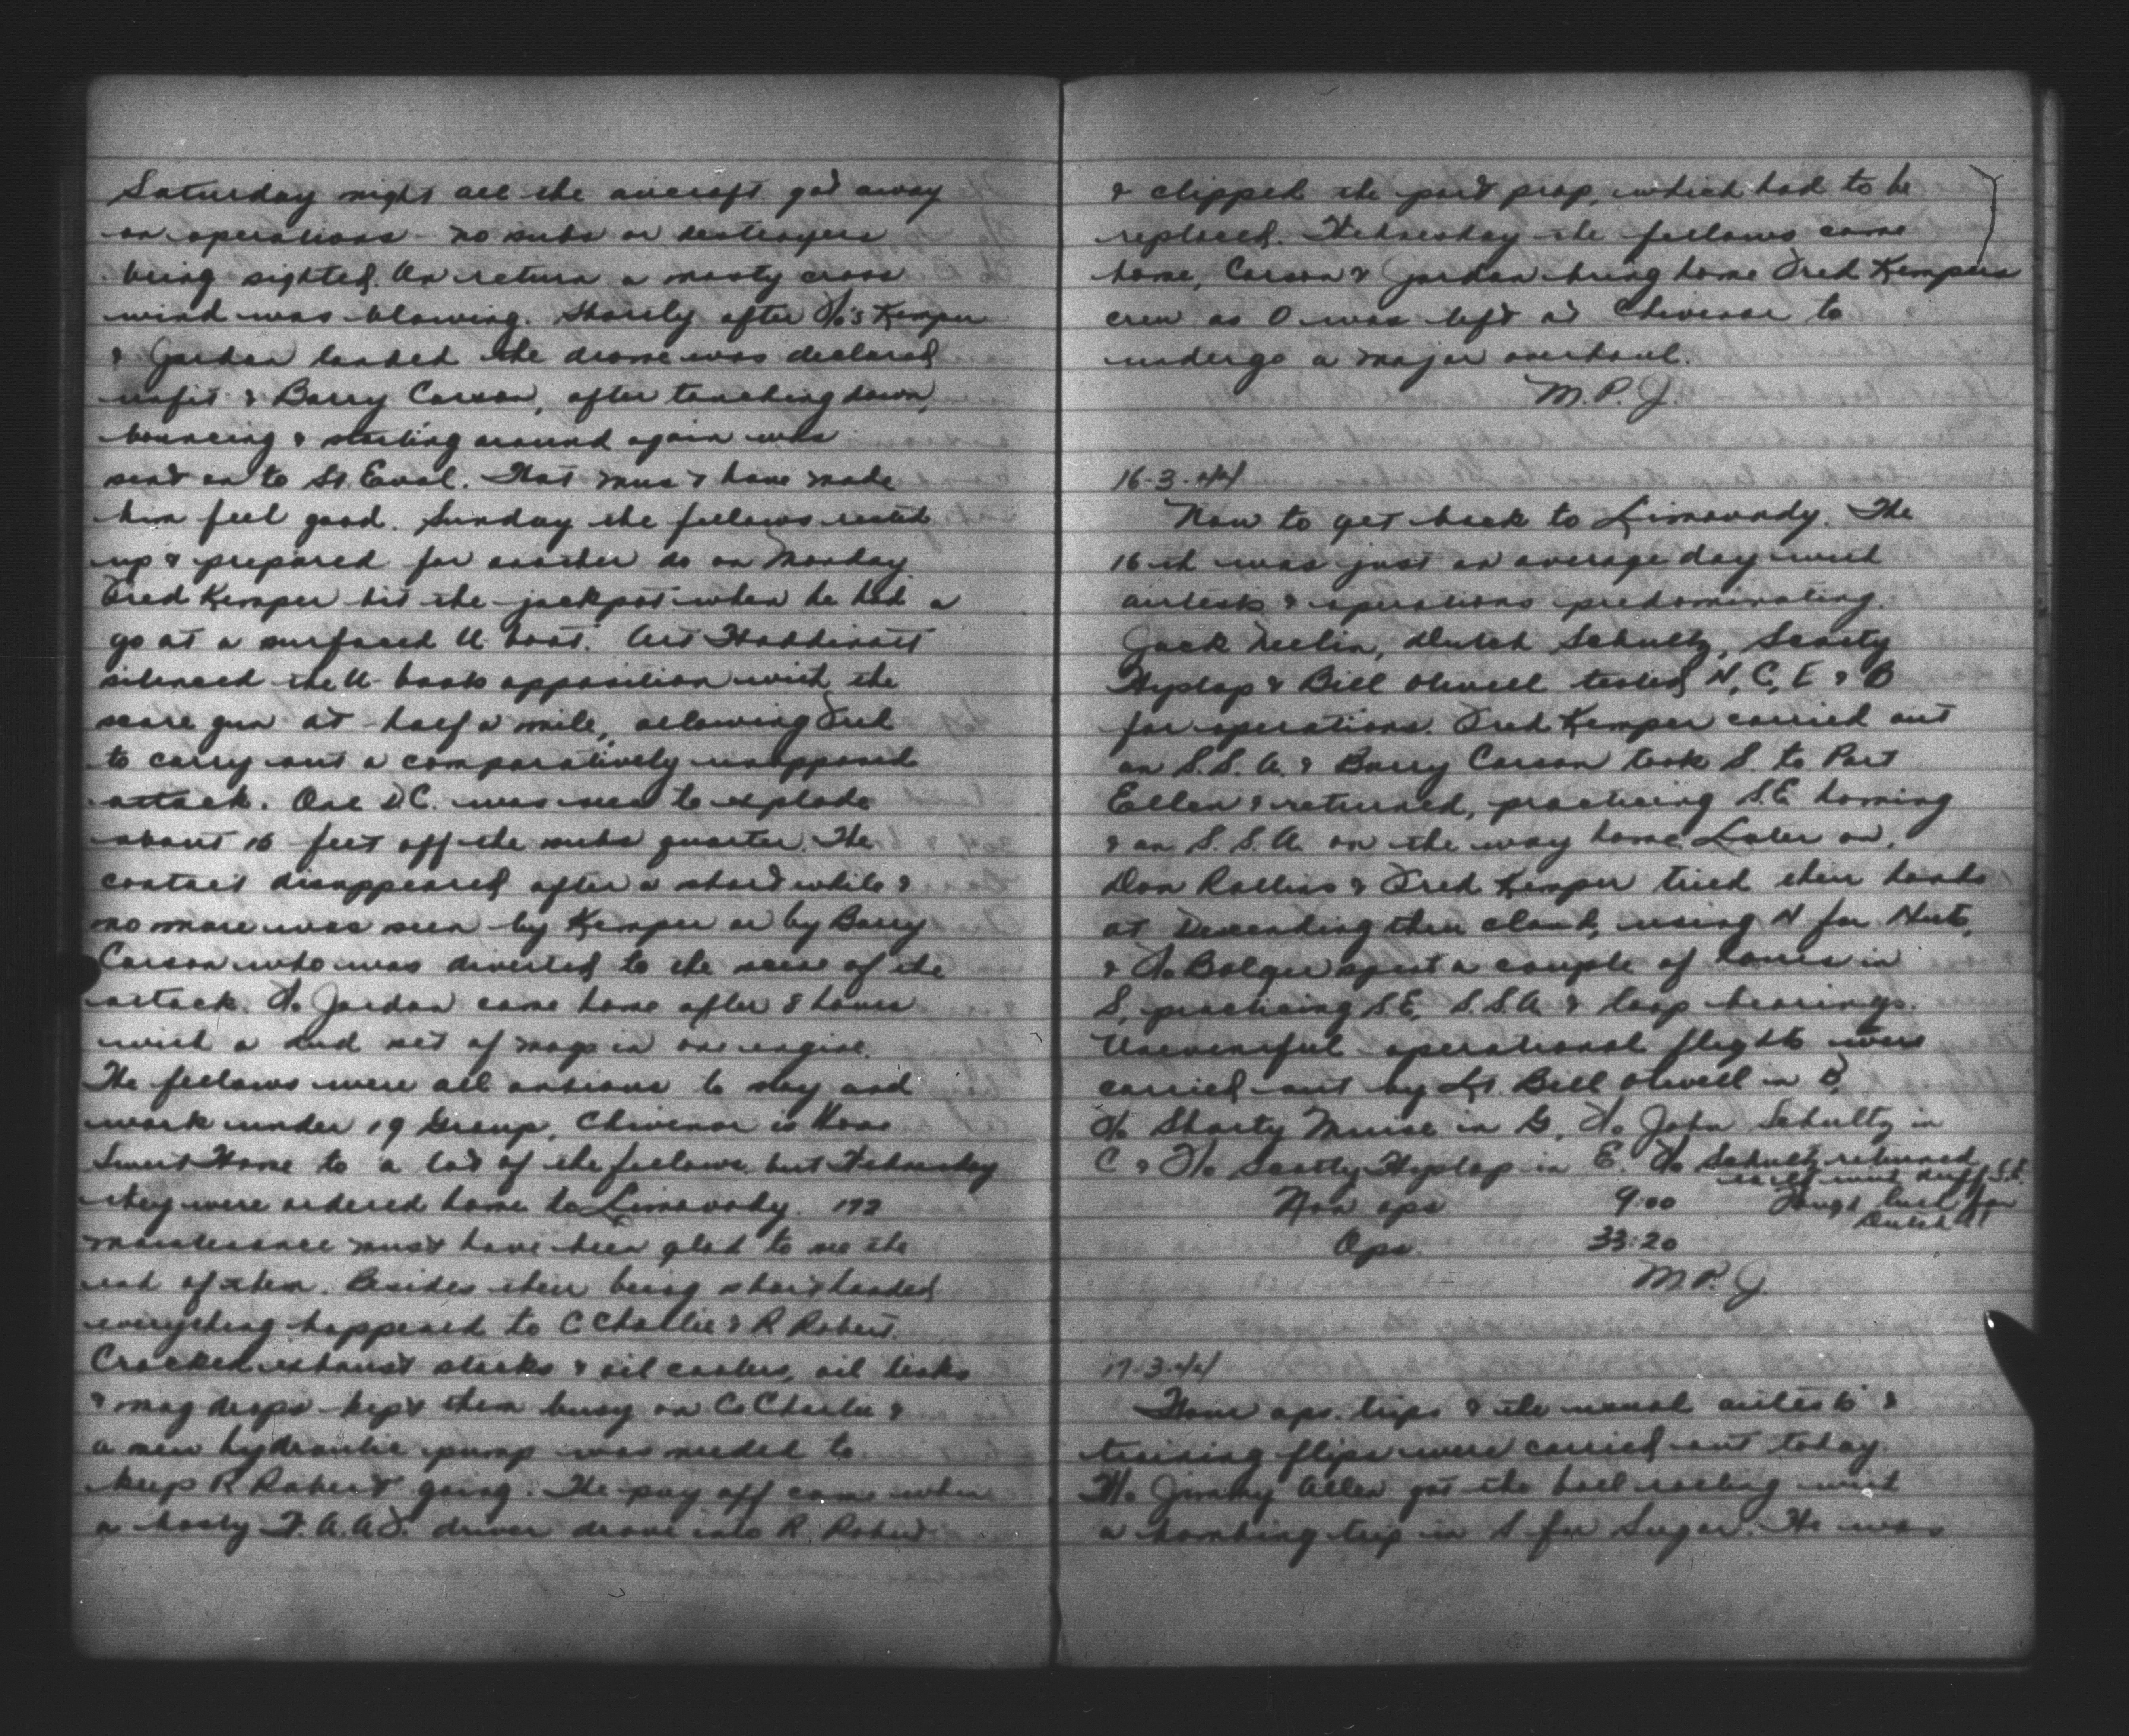 Saturday night all the aircraft got away
on operations - no subs or destroyers
being sighted. On return a nasty cross
wind was blowing. Shortly after F/O's Kemper
& Jordan landed the drome was declared
unfit & Barry Carson, after touching down,
bouncing & starting around again was
sent on to St. Eval. That must have made
him feel good. Sunday the fellows rested
up & prepared for another do on Monday.
Fred Kemper hit the jackpot when he had a
go at a surfaced U boat. Art Hoddinott
silenced the U boats opposition with the
scare gun at half a mile, allowing Fred
to carry out a comparatively unopposed
attack. One D.C. was seen to explode
about 16 feet off the subs quarter. The
contact disappeared after a short while &
no more was seen by Kemper or by Barry
Carson who was diverted to the scene of the
attack. F/O Jordan came home after 8 hours
with a dud set of mags in one engine.
The fellows were all anxious to stay and
work under 19 Group, Chivenor is Home
Sweet Home to a lot of the fellows, but Wednesday
they were ordered home to Limavady. 172
maintenance must have been glad to see the
end of them. Besides their being shorthanded
everything happened to C Charlie & R Robert.
Cracked exhaust stacks & oil coolers, oil leaks
& mag drops kept them busy on C Charlie &
a new hydraulic pump was needed to
keep R Robert going. The pay off came when
a hasty W.A.A.F. driver drove into R. Robert
& clipped the port prop, which had to be
replaced. Wednesday the fellows came
home, Carson & Jordan bring home Fred Kempers
crew as O was left at Chivenor to
undergo a major overhaul.
M.P.J.
16-3-44
Now to get back to Limavady. The
16th was just an average day with
airtests & operations predominating.
Jack Neelin, Dutch Schultz, Scotty
Hyslop & Bill Olwell tested N, C, E & B
for operations. Fred Kemper carried out
an S.S.A. & Barry Carson took S. to Port
Ellen & returned, practicing S.E. homing
& an S.S.A. on the way home. Later on,
Don Rollins & Fred Kemper tried their hands
at Descending thru cloud, using N for Nuts,
& F/O Bolger spent a couple of hours in
S, practicing S.E., S.S.A. & loop bearings.
Uneventful operational flights were
carried out by Lt. Bill Olwell in B,
F/O Shorty Muise in G, F/O John Schultz in
C & F/O Scotty Hyslop in E. F/O Schultz returned
early with duff S.E.
Tough luck for
Dutch
Non ops 9:00
Ops 33:20
M.P.J.
17-3-44
Four ops. trips & the usual airtests &
training flips were carried out today.
F/O Jimmy Allen got the ball rolling with
a bombing trip in S for Sugar. He was